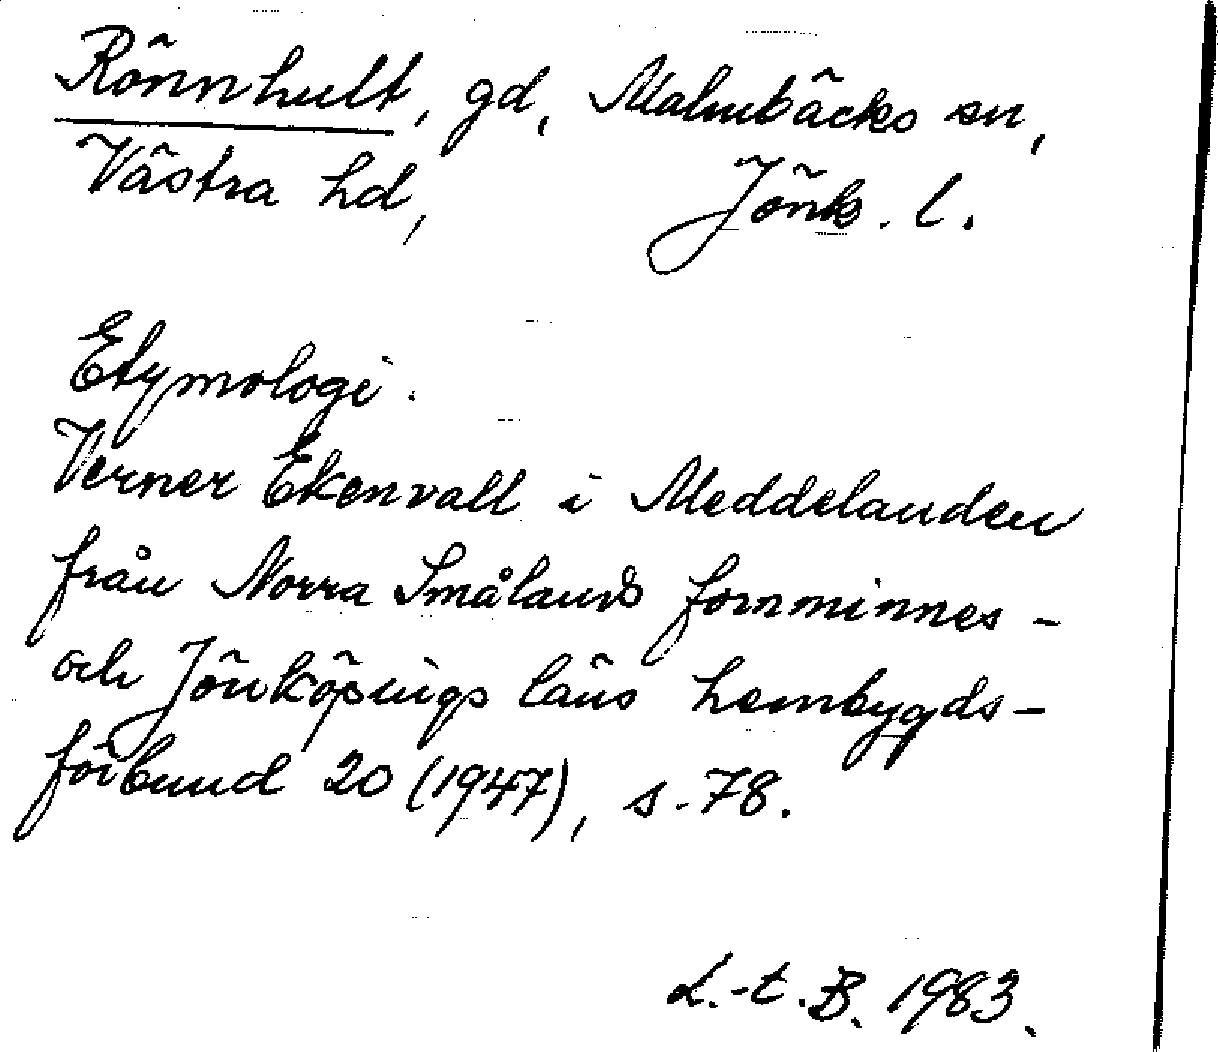 Rönnhult, gd, Malmbäcks sn,
Västra hd, Jönk. l.
Etymologi.
Verner Ekenvall i Meddelanden
från Norra Smålands fornminnes-
och Jönköpings läns hembygds-
förbund 20 (1947), s. 78.
L.-t. B. 1983.